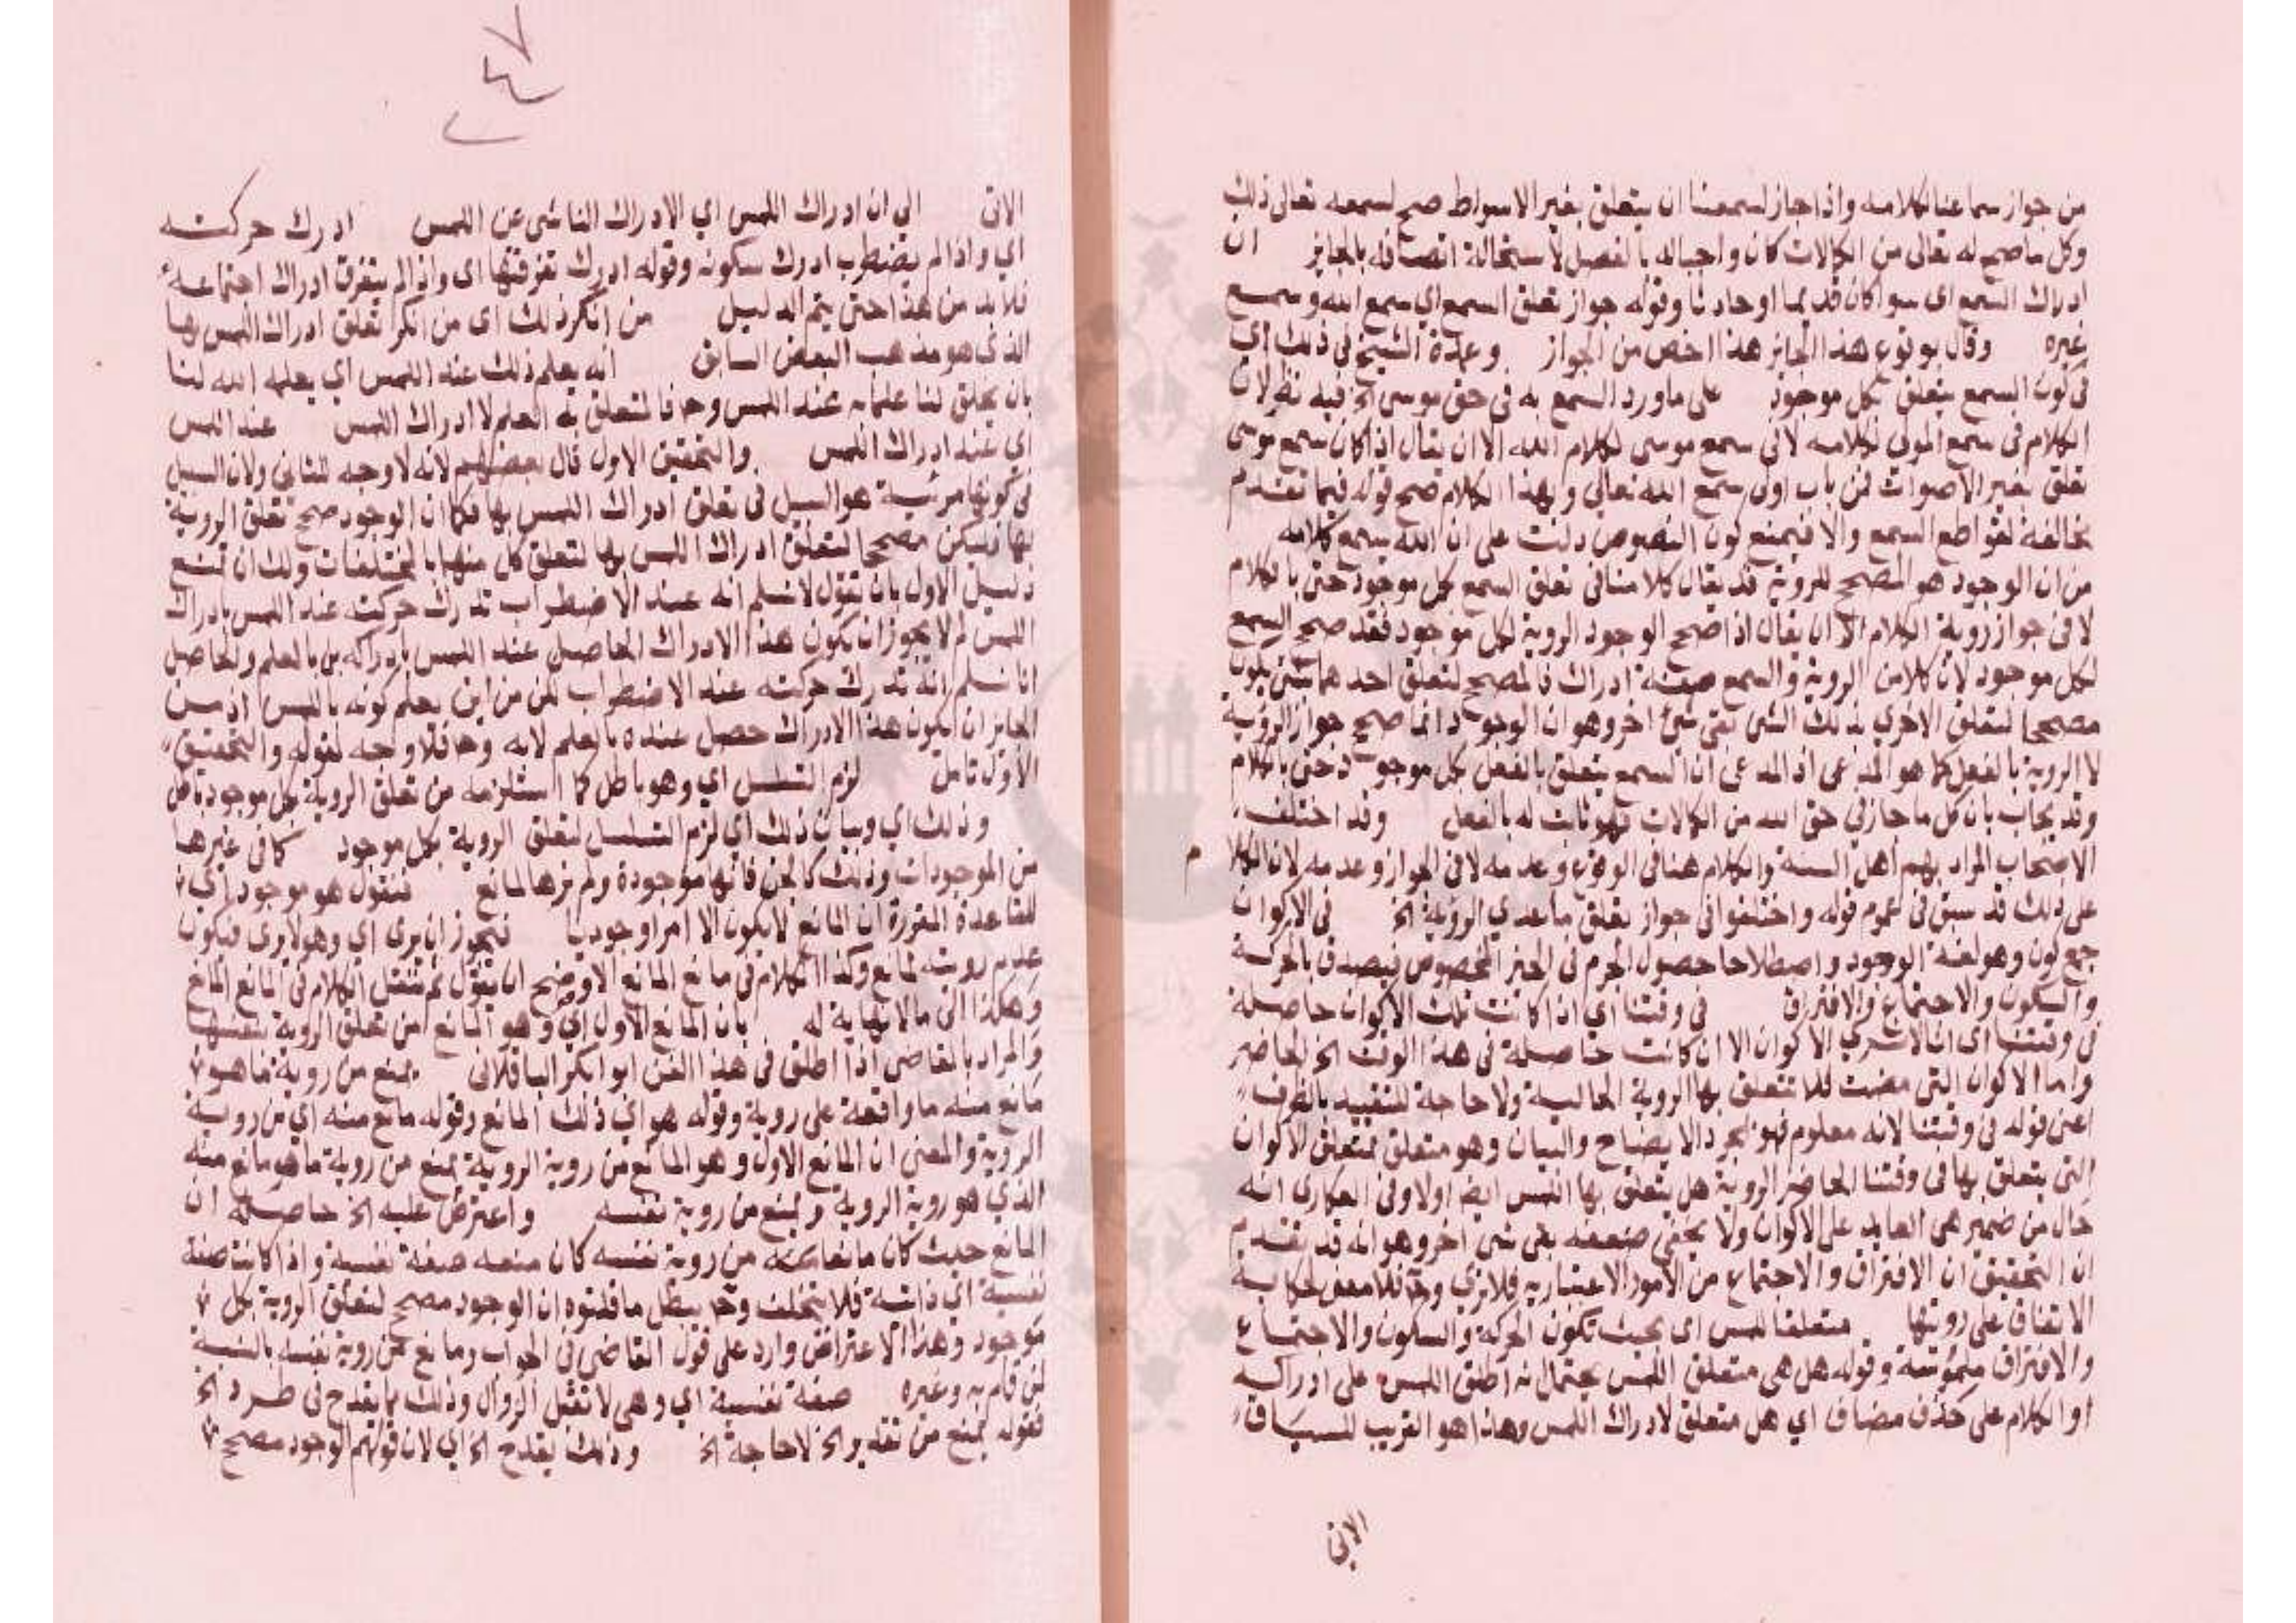 من جواز سماعنا لكلامه واذا جاز لسمعنا ان يتعلق بغير الاصوات صح لسمعه تعالى ذلك
وكل ما صح له تعالى من الكمالات كان واجبا له بالفصل لاستحالة اتصافه بالجايز ان
ادراك السمع اى سوا كان قديما او حادثا وقوله جواز تعلق السمع اي سمع الله وسمع
غيره وقال بوقوع هذا الجايز هذا اخص من الجواز وعمدة الشيخ في ذلك اي
في كون السمع يتعلق بكل موجود على ما ورد السمع به في حق موسى الخ فيه نظر لان
الكلام في سمع المولى لكلامه لا في سمع موسى لكلام الله الا ان يقال اذا كان سمع موسى
تعلق بغير الاصوات فمن باب اولى سمع الله تعالى وبهذا الكلام صح قوله فيما تقدم
مخالفة لقواطع السمع والا فيمنع كون النصوص دلت على ان الله يسمع كلامه
من ان الوجود هو المصحح للروية قد يقال كلامنا في تعلق السمع بكل موجود حتى بالكلام
لا في جواز روية الكلام الا ان يقال اذا صحح الوجود الروية لكل موجود فقد صحح السمع
لكل موجود لان كلا من الروية والسمع صفة ادراك فالمصحح لتعلق احدهما بشئ يكون
مصححا لتعلق الاخرى بذلك الشى بقى شئ اخر وهو ان الوجود انما صحح جواز الروية
لا الروية بالفعل كما هو المدعى اذ المدعى ان السمع يتعلق بالفعل بكل موجود حتى بالكلام
وقد يجاب بان كل ما جاز في حق الله من الكمالات فهو ثابت له بالفعل وقد اختلف
الاصحاب المراد بهم اهل السنة والكلام هنا في الوقوع وعدمه لا في الجواز وعدمه لان الكلام
على ذلك قد سبق في عموم قوله واختلفوا في جواز تعلق ما عدى الروية الخ في الاكوان
جمع كون وهو لغة الوجود واصطلاحا حصول الجرم في الحيز المخصوص فيصدق بالحركة
والسكون والاجتماع والافتراق في وقتنا اي اذا كانت تلك الاكوان حاصلة
في وقتنا اى انا لا نرى الاكوان الا ان كانت حاصلة في هذا الوقت الخ الحاضر
واما الاكوان التي مضت فلا تتعلق بها الروية الحالية ولا حاجة للتقييد بالظرف
اعنى قوله في وقتنا لانه معلوم فهو لمجرد الايضاح والبيان وهو متعلق بمتعلق الاكوان
التى يتعلق بها في وقتنا الحاضر الروية هل يتعلق بها اللمس ايضا اولا وفى العكارى انه
حال من ضمير هى العايد على الاكوان ولا يخفى ضعفه بقى شى اخر وهو انه قد تقدم
ان التحقيق ان الافتراق والاجتماع من الامور الاعتبارية فلا ترى وح فلا معنى لحكاية
الاتفاق على رويتها متعلقا للمس اى بحيث تكون الحركة والسكون والاجتماع
والافتراق ملموسة وقوله هل هى متعلق اللمس يحتمل انه اطلق اللمس على ادراكه
او الكلام على حذف مضاف اي هل متعلق لادراك اللمس وهذا هو القريب للسياق
الاتى
الاتى الي ان ادراك اللمس اي الادراك الناشى عن اللمس ادرك حركته
اي واذا لم يضطرب ادرك سكونه وقوله ادرك تفرقتها اى واذا لم يتفرق ادراك اجتماعه
فلا بد من هذا حتى يتم الدليل من انكر ذلك اى من انكر تعلق ادراك اللمس بها
الذى هو مذهب البعض السابق انه يعلم ذلك عند اللمس اي يعلمه الله لنا
بان يخلق لنا علما به عند اللمس وح فالمتعلق به العلم لا ادراك اللمس عند اللمس
اي عند ادراك اللمس والتحقيق الاول قال بعضهم لانه لا وجه للثاني ولان السبيل
في كونها مرئية هو السبيل في تعلق ادراك اللمس بها فكما ان الوجود صحح تعلق الروية
بها فليكن مصححا لتعلق ادراك اللمس بها لتعلق كل منهما بالمختلفات ولك ان تمنع
دليل الاول بان تقول لا نسلم انه عند الاضطراب تدرك حركته عند اللمس بادراك
اللمس لم لا يجوز ان يكون هذا الادراك الحاصل عند اللمس بادراكه بل بالعلم والحاصل
انا نسلم انه تدرك حركته عند الاضطراب لكن من اين يعلم كونه باللمس اذ من
الجايز ان يكون هذا الادراك حصل عنده بالعلم لا به وح فلا وجه لقوله والتحقيق
الاول تامل لزم التسلسل اي وهو باطل فما استلزمه من تعلق الروية بكل موجود باطل
وذلك اي وبيان ذلك اي لزوم التسلسل لتعلق الروية بكل موجود كما في غيرها
من الموجودات وذلك كالجن فانها موجودة ولم نرها لمانع فنقول هو موجود اي
للقاعدة المقررة ان المانع لا يكون الا امرا وجوديا فيجوز ان يرى اي وهو لا يرى فيكون
عدم رويته لمانع وكذا الكلام في مانع المانع الاوضح ان يقول ثم ننقل الكلام في المانع المانع
وهكذا الى ما لا نهاية له بان المانع الاول اي وهو المانع من تعلق الروية بنفسها
والمراد بالقاضى اذا اطلق في هذا الفن ابو بكر الباقلانى يمنع من روية ما هو
مانع منه ما واقعة على روية وقوله هو اي ذلك المانع وقوله مانع منه اي من روية
الروية والمعنى ان المانع الاول وهو المانع من روية الروية يمنع من روية ما هو مانع منه
الذي هو روية الروية ويمنع من روية نفسه واعترض عليه الخ حاصله ان
المانع حيث كان مانعا من روية نفسه كان منعه صفة نفسية واذا كانت صفة
نفسية اي ذاتية فلا يتخلف وح يبطل ما قلتوه ان الوجود مصحح لتعلق الروية بكل
موجود وهذا الاعتراض وارد على قول القاضى في الجواب ومانع من روية نفسه بالنسبة
لمن قام به وغيره صفة نفسية اي وهى لا تقبل الزوال وذلك مما يقدح في طرد الخ
فقوله يمنع من تقدير الخ لا حاجة الخ وذلك يقدح الخ اي لان قولهم الوجود مصحح